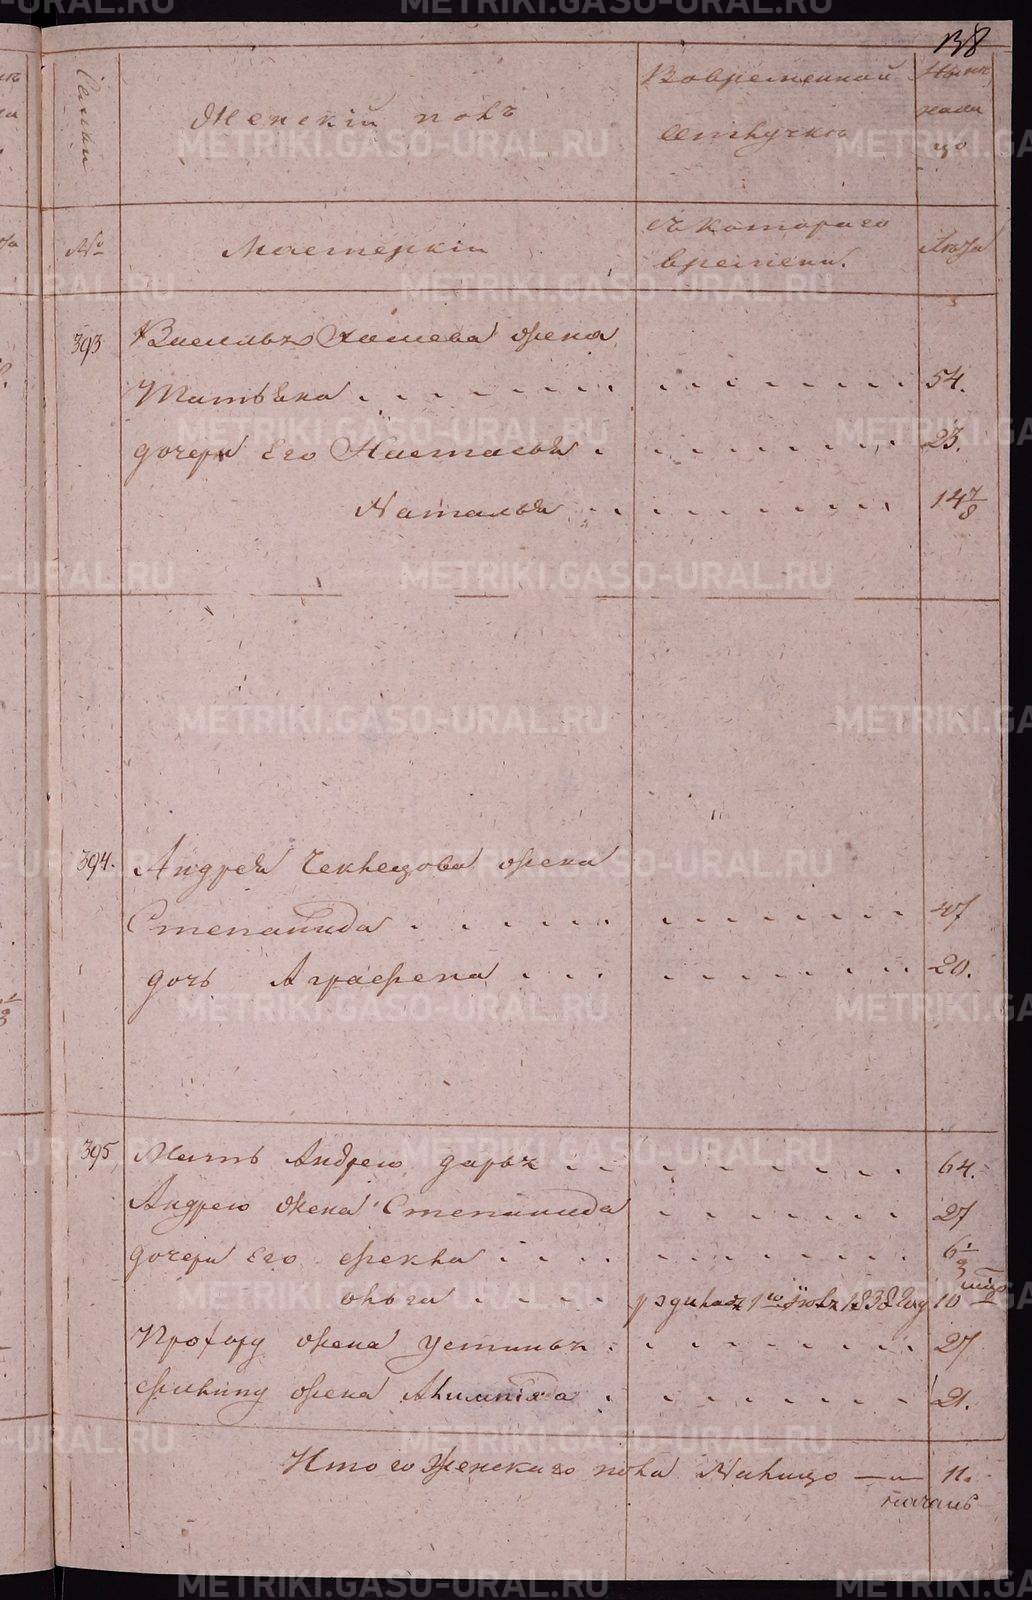 138
Семьи
Женскій полъ
Во временной
отлучкѣ
Нынѣ
нали
цо
№
Мастерскіи
съ котораго
времени.
Лѣта
393
Васильѧ жена
Татьѧна 54.
дочери Его Настасьѧ 23.
Натальѧ 14 7/8
394.
Андреѧ жена
Степанида 47
дочь Аграфена 20.
395
Мать Андрею дарьѧ 64.
Андрею жена Степанида 27
дочери Его Фекла 6 1/3
ольга 1838 год 10
Прохору жена устиньѧ 27
Филипу жена Алимпіада 21.
Итого женскаго пола Налицо 11.
METRIKI.GASO-URAL.RU